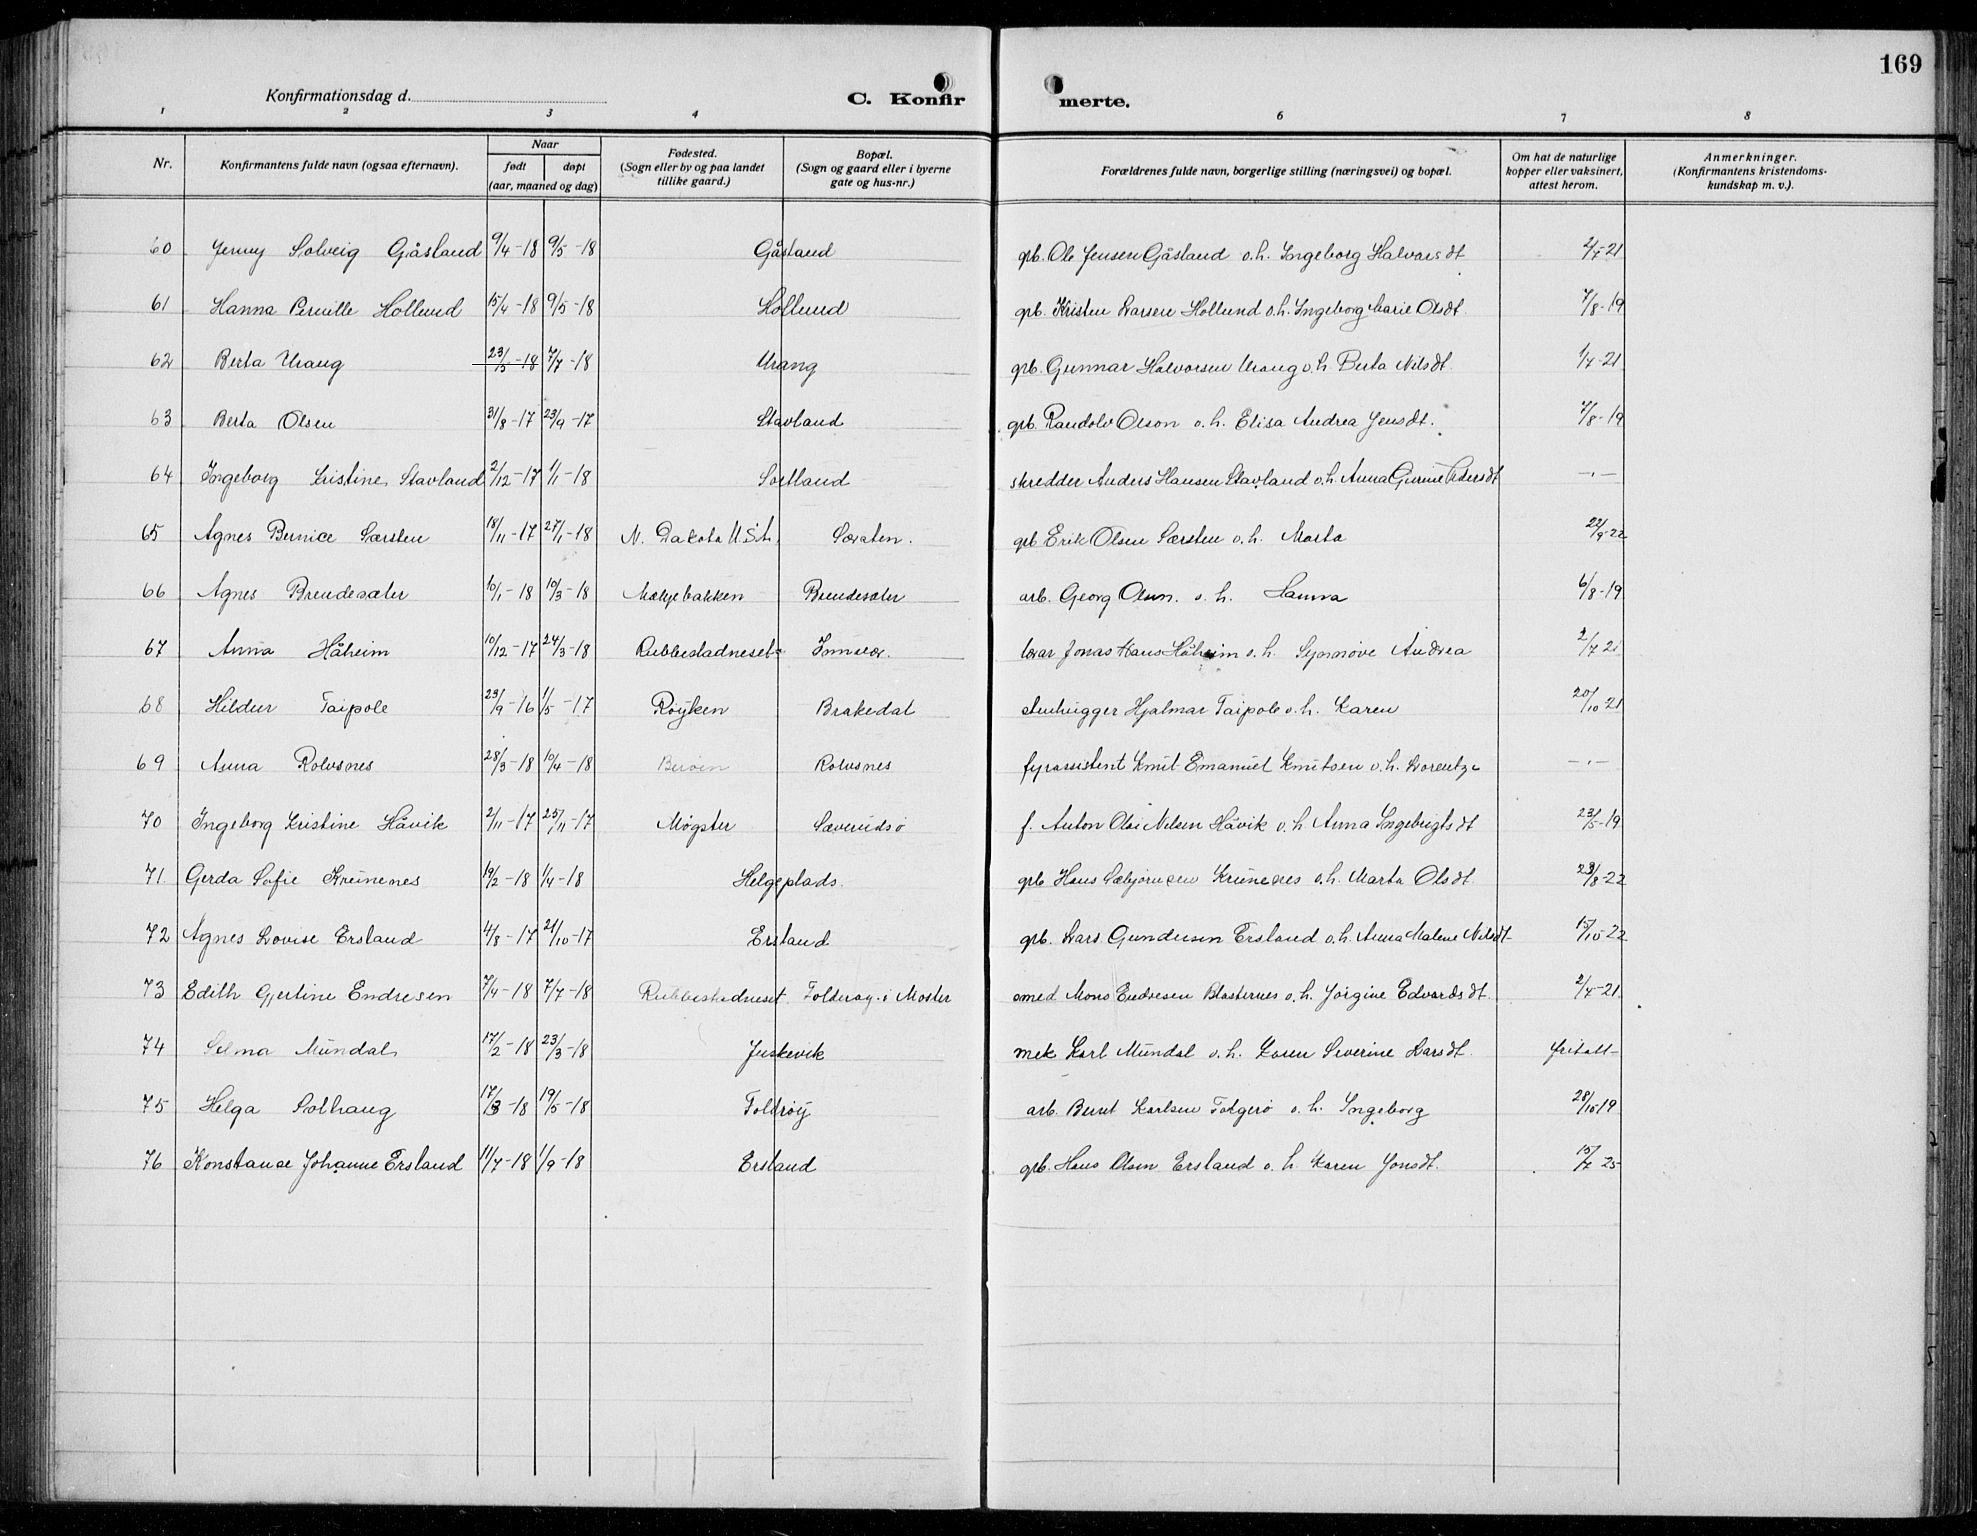 169
Konfirmationsdag d.
C. Konfir merte.
1 2 3 4 6 7 8
Nr. Konfirmantens fulde navn (ogsaa efternavn). Naar født døpt (aar, maaned og dag) Fødested. (Sogn eller by og paa landet tillike gaard.) Bopæl. (Sogn og gaard eller i byerne gate og hus-nr.) Forældrenes fulde navn, borgerlige stilling (næringsvei) og bopæl. Om hat de naturlige kopper eller vaksinert, attest herom. Anmerkninger. (Konfirmantens kristendoms-kundskap m. v.).
60 Jenny Solveig Gåsland 9/4-18 9/5-18 Gåsland grb. Ole Jensen Gåsland o.h. Ingeborg Halvorsdt
61 Hanna Pernille Hollund 15/4-18 9/5-18 Hollund grb. Kristen Larsen Hollund o.h. Ingeborg Marie Olsdt. 7/8-19
62 Berta Urang 23/5-18 7/7-18 Urang grb. Gunnar Halvorsen Urang o.h. Berta Nilsdt.
63 Berta Olsen 31/8-17 23/9-17 Stavland grb. Randolv Olson o.h. Elisa Andrea Jensdt. 7/8-19
64 Ingeborg Kristine Stavland 2/12-17 1/1-18 skredder Anders Hansen Stavland o.h. Anna Gurine Pedersdt -.-
65 Agnes Bernice Særsten 18/11-17 27/1-18 N. Dakota U.S.A. grb Erik Olsen Særsten o.h. Marta 22/9-22
66 Agnes Brendesæter 10/1-18 10/3-18 Mækjebakken Brendesæter arb. Georg Olsen. o.h. Hanna 6/8-19
67 Anna Håheim 10/12-17 24/3-18 Rubbestadneset Innvær. Jonas Hans Håheim o.h. Synnøve Andrea 2/7 21
68 Hildur Taipole 23/9-16 1/5-17 Røyken Brakedal stenhugger Hjalmar Taipole o.h. Karen 20/10 21
69 Anna Rolvsnes 28/3-18 10/4-18 Rolvsnes fyrassistent Knut Emanuel Knutsen o.h. Lorentze -.-
70 Ingeborg Kristine Håvik 2/11-17 25/11-17 Møgster Sæverudsø f. Anton Olai Nilsen Håvik o.h. Anna Ingebrigtsdt 23/5-19
71. Gerda Sofie Kreinenes 19/2-18 1/4-18 Helgeplads. grb Hans Sæbjørnsen o.h. Marta Olsdt. 23/8-22
72 Agnes Lovise Ersland 4/8-17 21/10-17 Ersland grb. Lars Gundersen Ersland o.h. Anna Malene Nilsdt 15/10-22
73 Edith Gjertine Endresen 7/4-18 7/7-18 Rubbestadneset Folderøy i Moster smed Mons Endresen o.h. Jørgine Edvardsdt.
74 Selma Mundal 17/2-18 23/3-18 Juskevik mek Karl Mundal o.h. Severine Larsdt.
75 Helga Solhaug 17/3-18 19/5-18 Foldrøy arb. Berent Karlsen o.h. Ingeborg 28/10-19
76 Konstance Johanne Ersland 11/7-18 1/9-18 Ersland grb. Hans Olsen Ersland o.h. Karen Jonsdt.